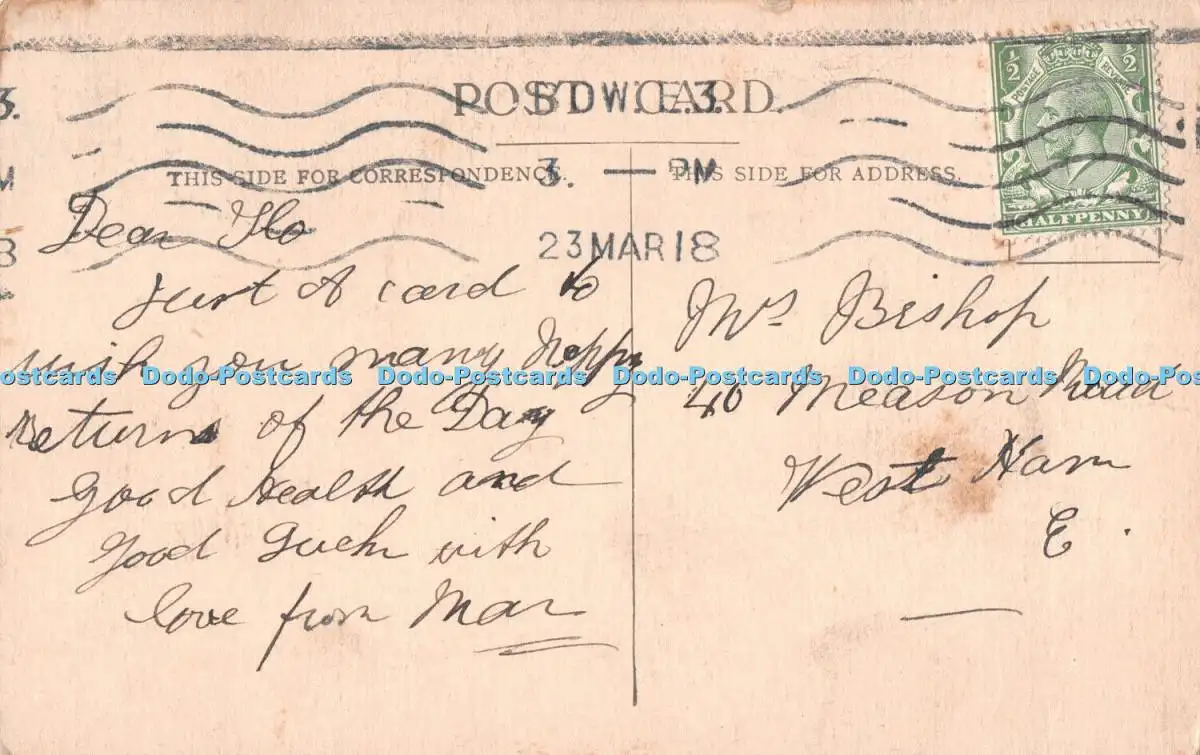 POST CARD.
S.D.W.E.3.
THIS SIDE FOR CORRESPONDENCE.
THIS SIDE FOR ADDRESS.
3. — PM
23 MAR 18
½ POSTAGE REVENUE ½
HALFPENNY
Dear Flo
Just A card to
wish you many Happy
Returns of the Day
Good Health and
Good Luck with
love from Mar
Mrs Bishop
40 Measson Road
West Ham
E.
ostcards Dodo-Postcards Dodo-Postcards Dodo-Postcards Dodo-Postcards Dodo-